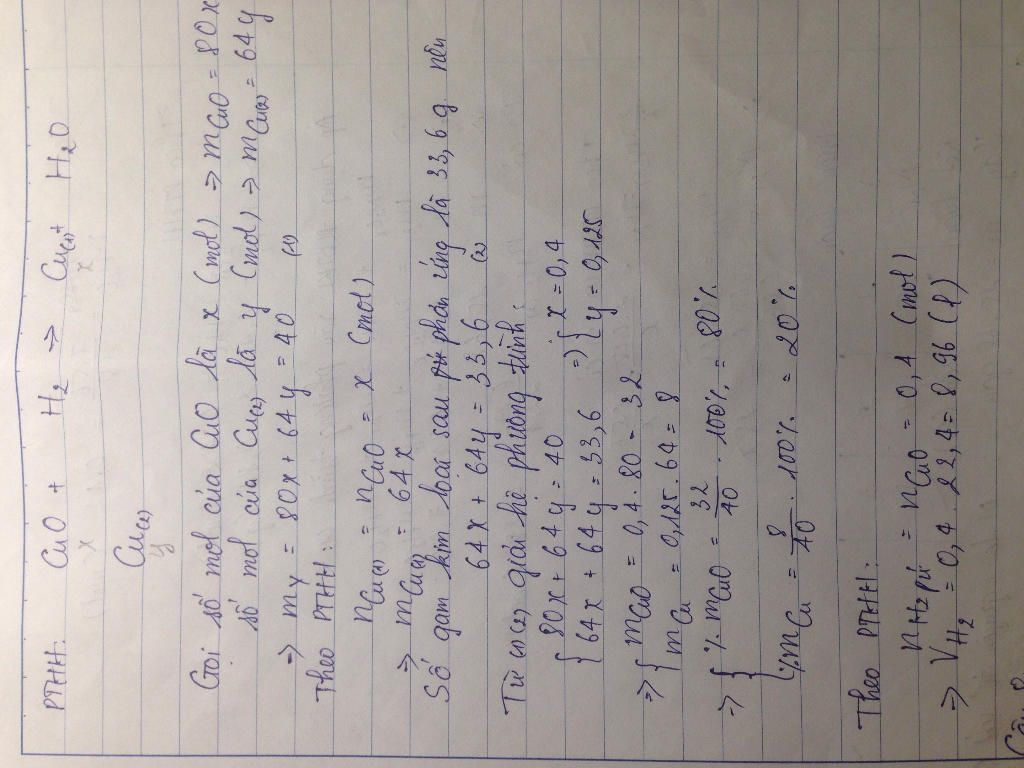 PTHH: CuO + H₂ → Cu₍₁₎ + H₂O
x x
Cu₍₂₎
y
Gọi số mol của CuO là x (mol) ⇒ mCuO = 80x
số mol của Cu₍₂₎ là y (mol) ⇒ mCu₍₂₎ = 64y
⇒ mY = 80x + 64y = 40 (1)
Theo PTHH:
nCu₍₁₎ = nCuO = x (mol)
⇒ mCu₍₁₎ = 64x
Số gam kim loại sau phản ứng là 33,6 g nên
64x + 64y = 33,6 (2)
Từ (1)(2) giải hệ phương trình:
{ 80x + 64y = 40 ⇒ { x = 0,4
{ 64x + 64y = 33,6 { y = 0,125
⇒ { mCuO = 0,4.80 = 32
{ mCu = 0,125.64 = 8
⇒ { %mCuO = 32/40 . 100% = 80%
{ %mCu = 8/40 . 100% = 20%
Theo PTHH:
nH₂pứ = nCuO = 0,4 (mol)
⇒ VH₂ = 0,4 . 22,4 = 8,96 (l)